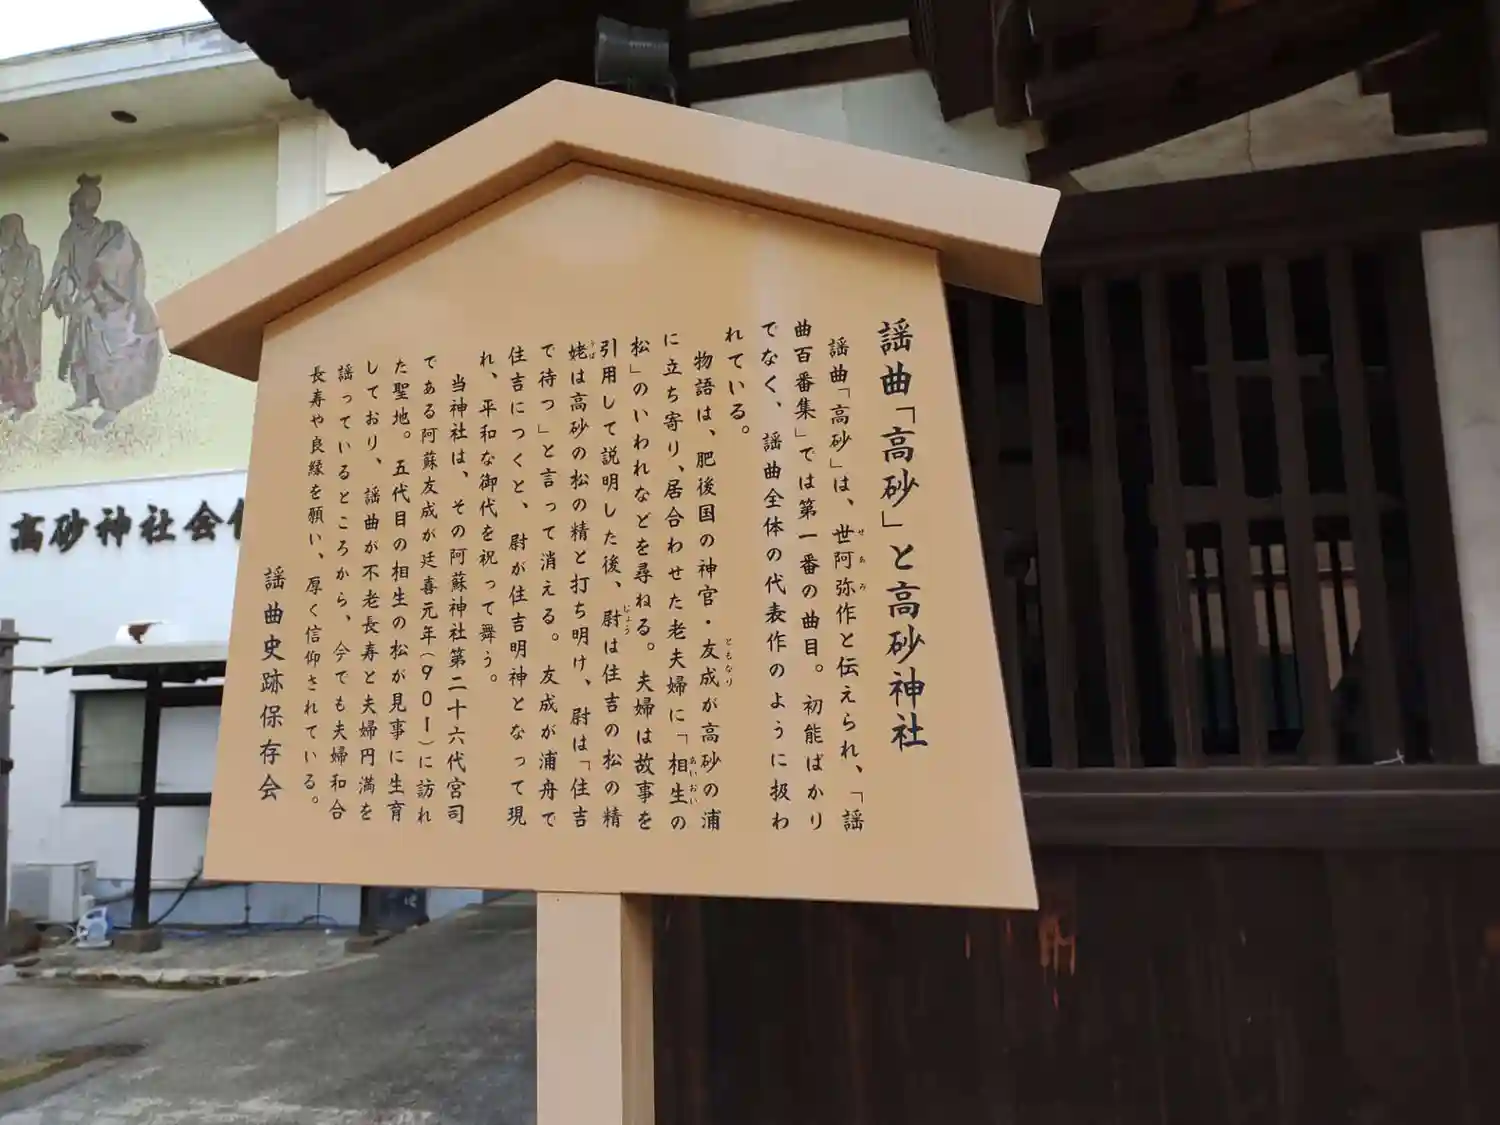 謡曲「高砂」と高砂神社
謡曲「高砂」は、世阿弥作と伝えられ、「謡
曲百番集」では第一番の曲目。初能ばかり
でなく、謡曲全体の代表作のように扱わ
れている。
物語は、肥後国の神官・友成が高砂の浦
に立ち寄り、居合わせた老夫婦に「相生の
松」のいわれなどを尋ねる。夫婦は故事を
引用して説明した後、尉は住吉の松の精
姥は高砂の松の精と打ち明け、尉は「住吉
で待つ」と言って消える。友成が浦舟で
住吉につくと、尉が住吉明神となって現
れ、平和な御代を祝って舞う。
当神社は、その阿蘇神社第二十六代宮司
である阿蘇友成が廷喜元年(901)に訪れ
た聖地。五代目の相生の松が見事に生育
しており、謡曲が不老長寿と夫婦円満を
謡っているところから、今でも夫婦和合
長寿や良縁を願い、厚く信仰されている。
謡曲史跡保存会
せあみ
ともなり
あいおい
じょう
うば
高砂神社会館